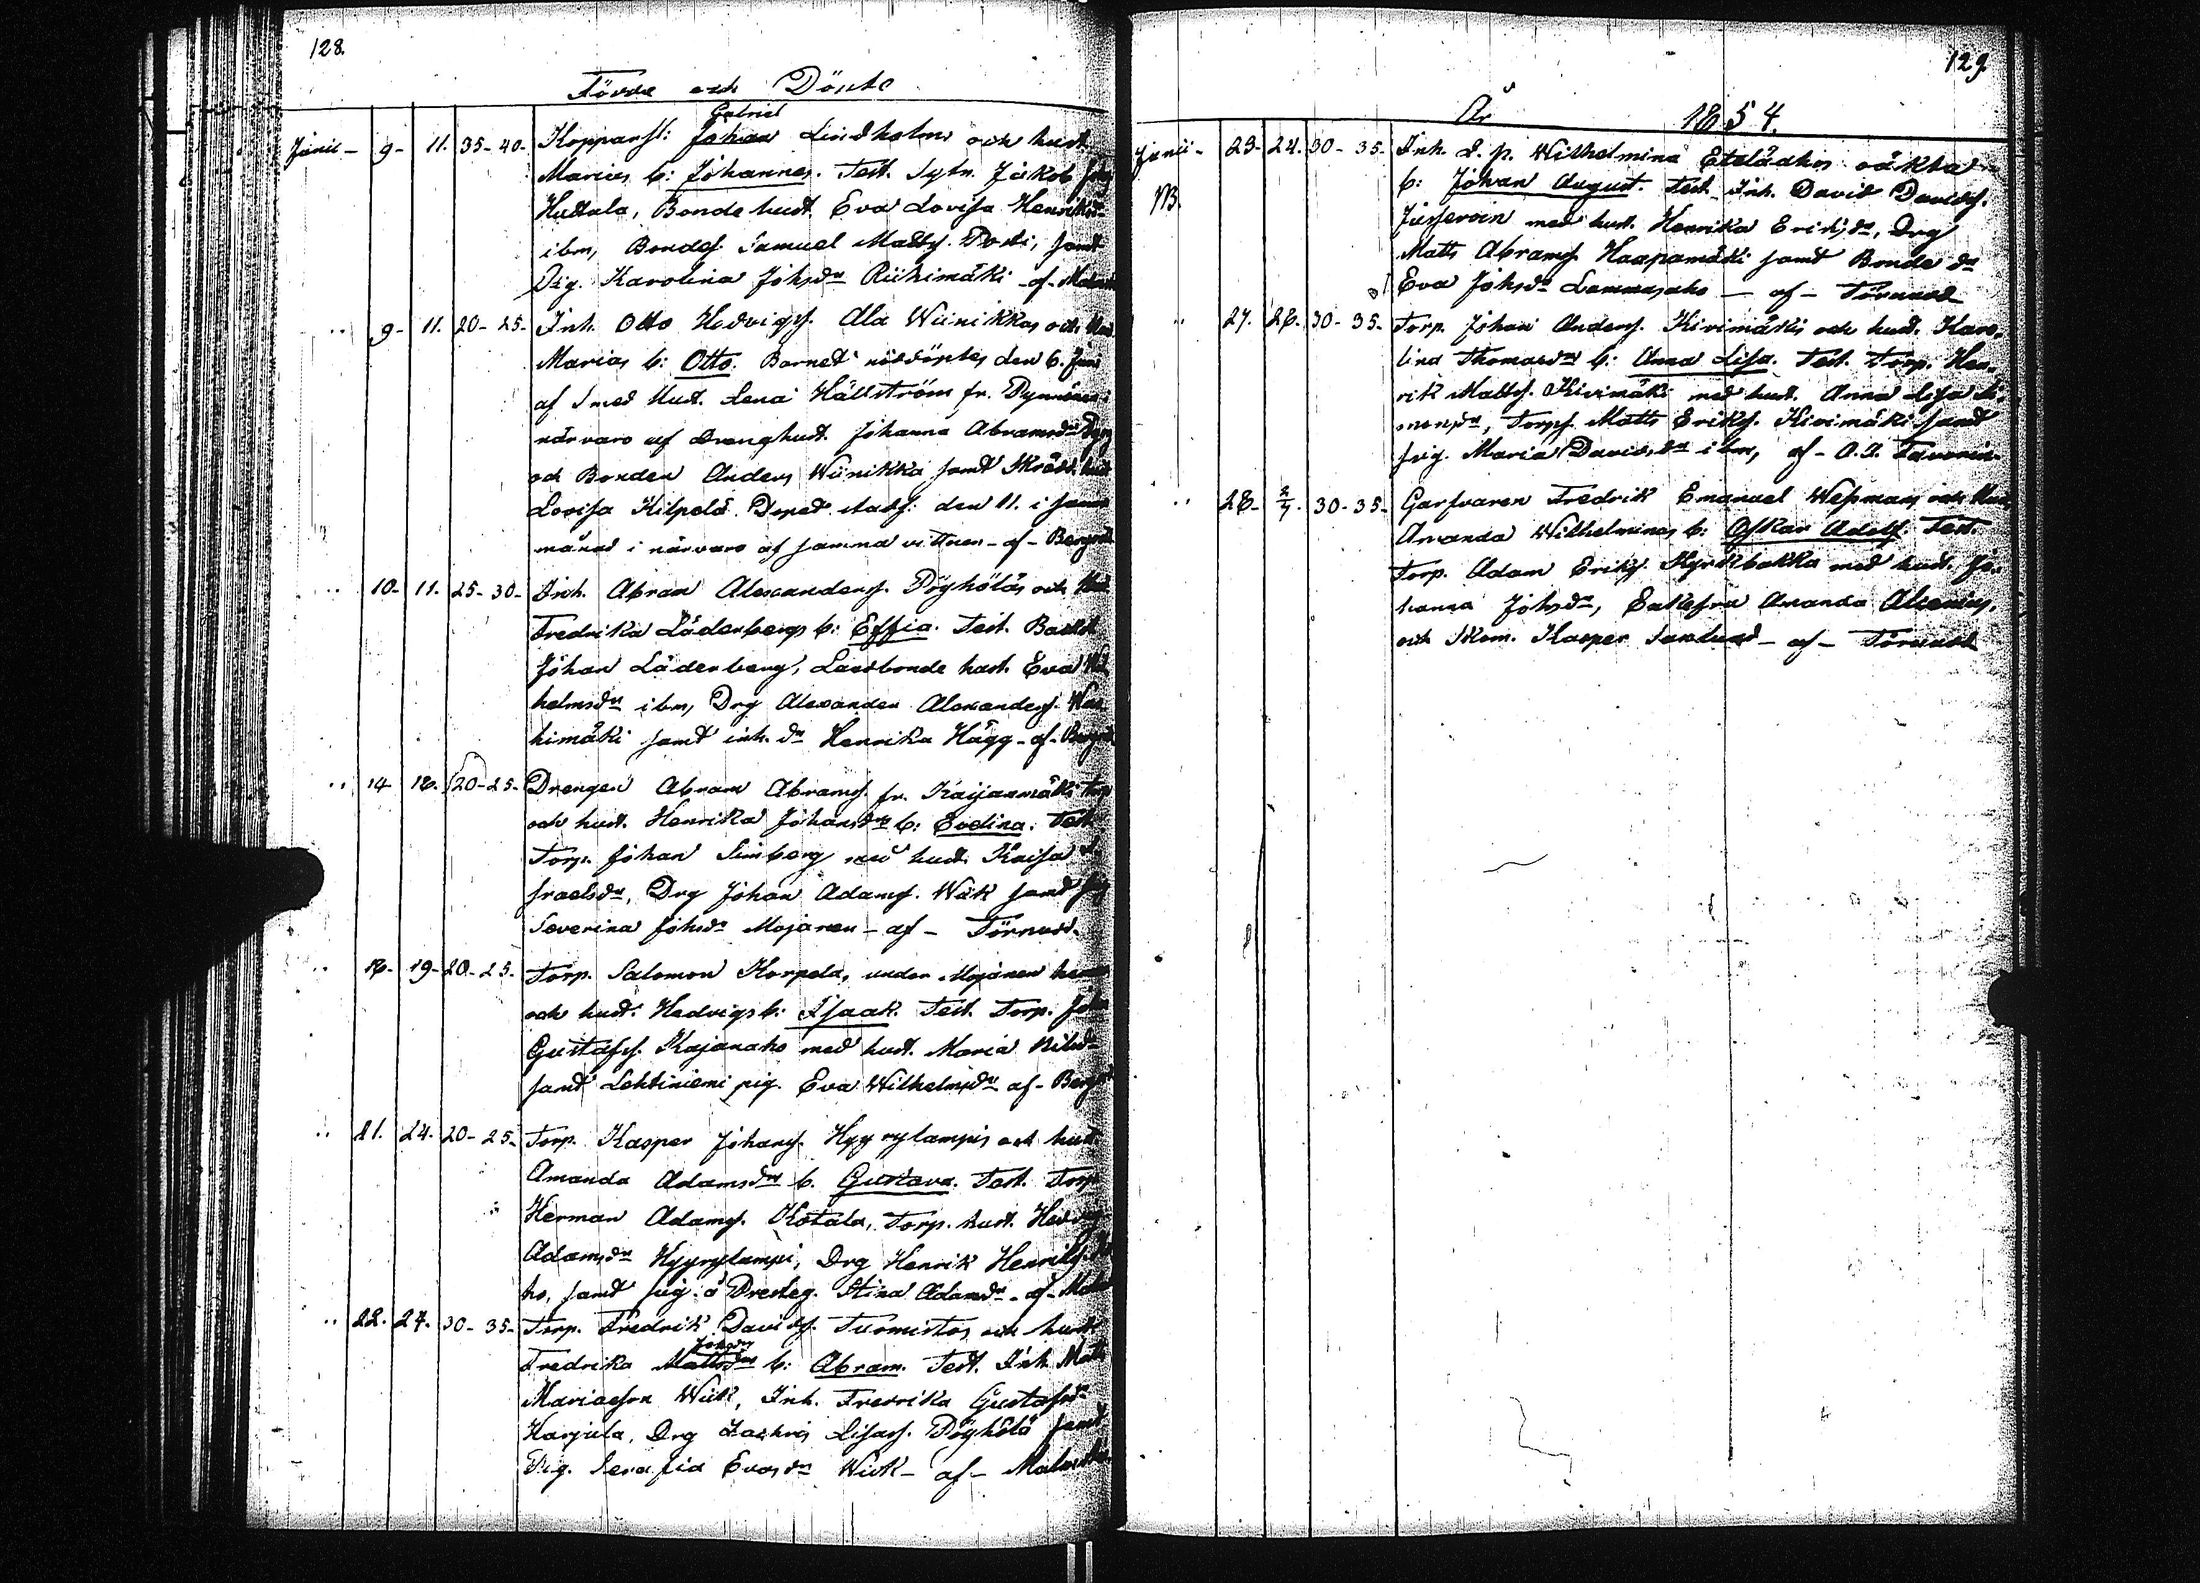 128.
Födde och Döpte
Junii - 9- 11. 35-40- Kopparsl: Johan Gabriel Lindholms och hust.
Marias b: Johannes. Test. Sytn. Jakob
Huttala, Bonde hust. Eva Lovisa Henriksd:r
ibm, Bondes. Samuel Matts. Posti, samt
Pig. Karolina Johsd:r Riihimäki - af -
" 9- 11. 20-25- Inh. Otto Hedvigs. Ala Wiinikkas och
Marias b: Otto. Barnet nöddöptes den 6. Juni
af Smed hust. Lena Hällström fr.
närvaro af drenghust. Johanna Abramsd:r
och Bonden Anders Wiinikka samt
Lovisa Kilpelä. Doped. stadf: den 11. i samma
månad i närvaro af samma vittnen - af -
" 10- 11. 25-30- Inh. Abram Alexanders. Pöyhöläs och
Fredrika Läderbergs b: Effia. Test.
Johan Läderberg, Landbonde hust. Eva Wil
helmsd:r ibm, Drg Alexander Alexanders.
himäki samt inh. d:r Henrika Hägg - af -
" 14 18. 20-25- Drengen Abram Abrams. fr. Kaijanmäki torp
och hust. Henrika Johansd:rs b: Evelina. Test.
Torp. Johan Simberg med hust. Kaisa I
sraelsd:r, Drg Johan Adams. Wäk samt pig
Severina Johsd:r Mojanen - af - Törnudd.
" 16- 19- 20-25- Torp. Salomon Korpela, under Mojanen
och hust. Hedvigs b: Isaak. Test. Torp. Joh
Gustafs. Kajanaho med hust. Maria Nilsd:r
samt Lehtiniemi pig. Eva Wilhelmsd:r af -
" 21. 24. 20-25- Torp. Kasper Johans. Hyyrylampis och hust.
Amanda Adamsd:rs b. Gustava. Test. Torp
Herman Adams. Kotala, Torp. hust. Hedvig
Adamsd:r Hyyrylampi, Drg Henrik Henriks.
ho, samt pig. å Presteg. Stina Adamsd:r - af -
" 22. 27. 30-35- Torp. Fredrik Davids. Tuomistos och hust
Fredrika Mattsd:rs Johsd:rs b: Abram. Test. Inh. Matts
Mariaeson Wiik, Inh. Fredrika Gustafsd:r
Harjula, Drg Zachris Lisas. Pöyhölä samt
Pig. Serafia Evasd:r Wiik - af -
129.
År 1854.
Junii - 23- 24. 30-35- Inh. d. p. Wilhelmina Eteläahos oäkta
NB. b: Johan August. Test. Inh. David Davids.
med hust. Henrika Eriksd:r, Drg
Matts Abrams. Haapamäki samt Bonde d:r
Eva Johsd:r Lammasaho - af - Törnudd
" 27. 28. 30-35- Torp. Johan Anders. Kivimäkis och hust. Karo-
lina Thomasd:rs b: Anna Lisa. Test. Torp. Hen-
rik Matts. Kivimäki med hust. Anna Lisa Si-
monsd:r, Torps. Matts Eriks. Kivimäki samt
pig. Maria Davidsd:r ibm, af - A.
" 28- 2/7. 30-35- Garfvaren Fredrik Emanuel Wessmans och
Amanda Wilhelminas b: Oskar Adolf. Test.
Torp. Adam Eriks. Kyrkbakka med hust. Jo-
hanna Johsd:r, Enkefru Amanda Alcenius,
och Skom. Kasper Sandlund - af - Törnudd